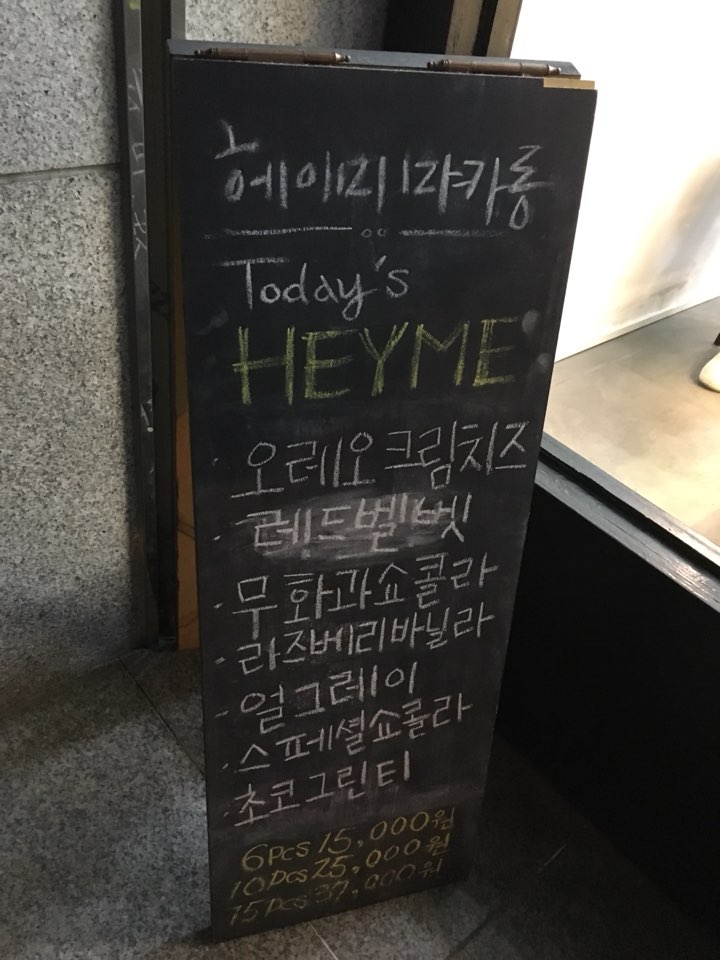 헤이미 마카롱
Today's
HEYME
· 오레오크림치즈
· 레드벨벳
· 무화과쇼콜라
· 라즈베리바닐라
· 얼그레이
· 스페셜쇼콜라
· 초코그린티
6pcs 15,000원
10pcs 25,000원
15pcs 37,000원